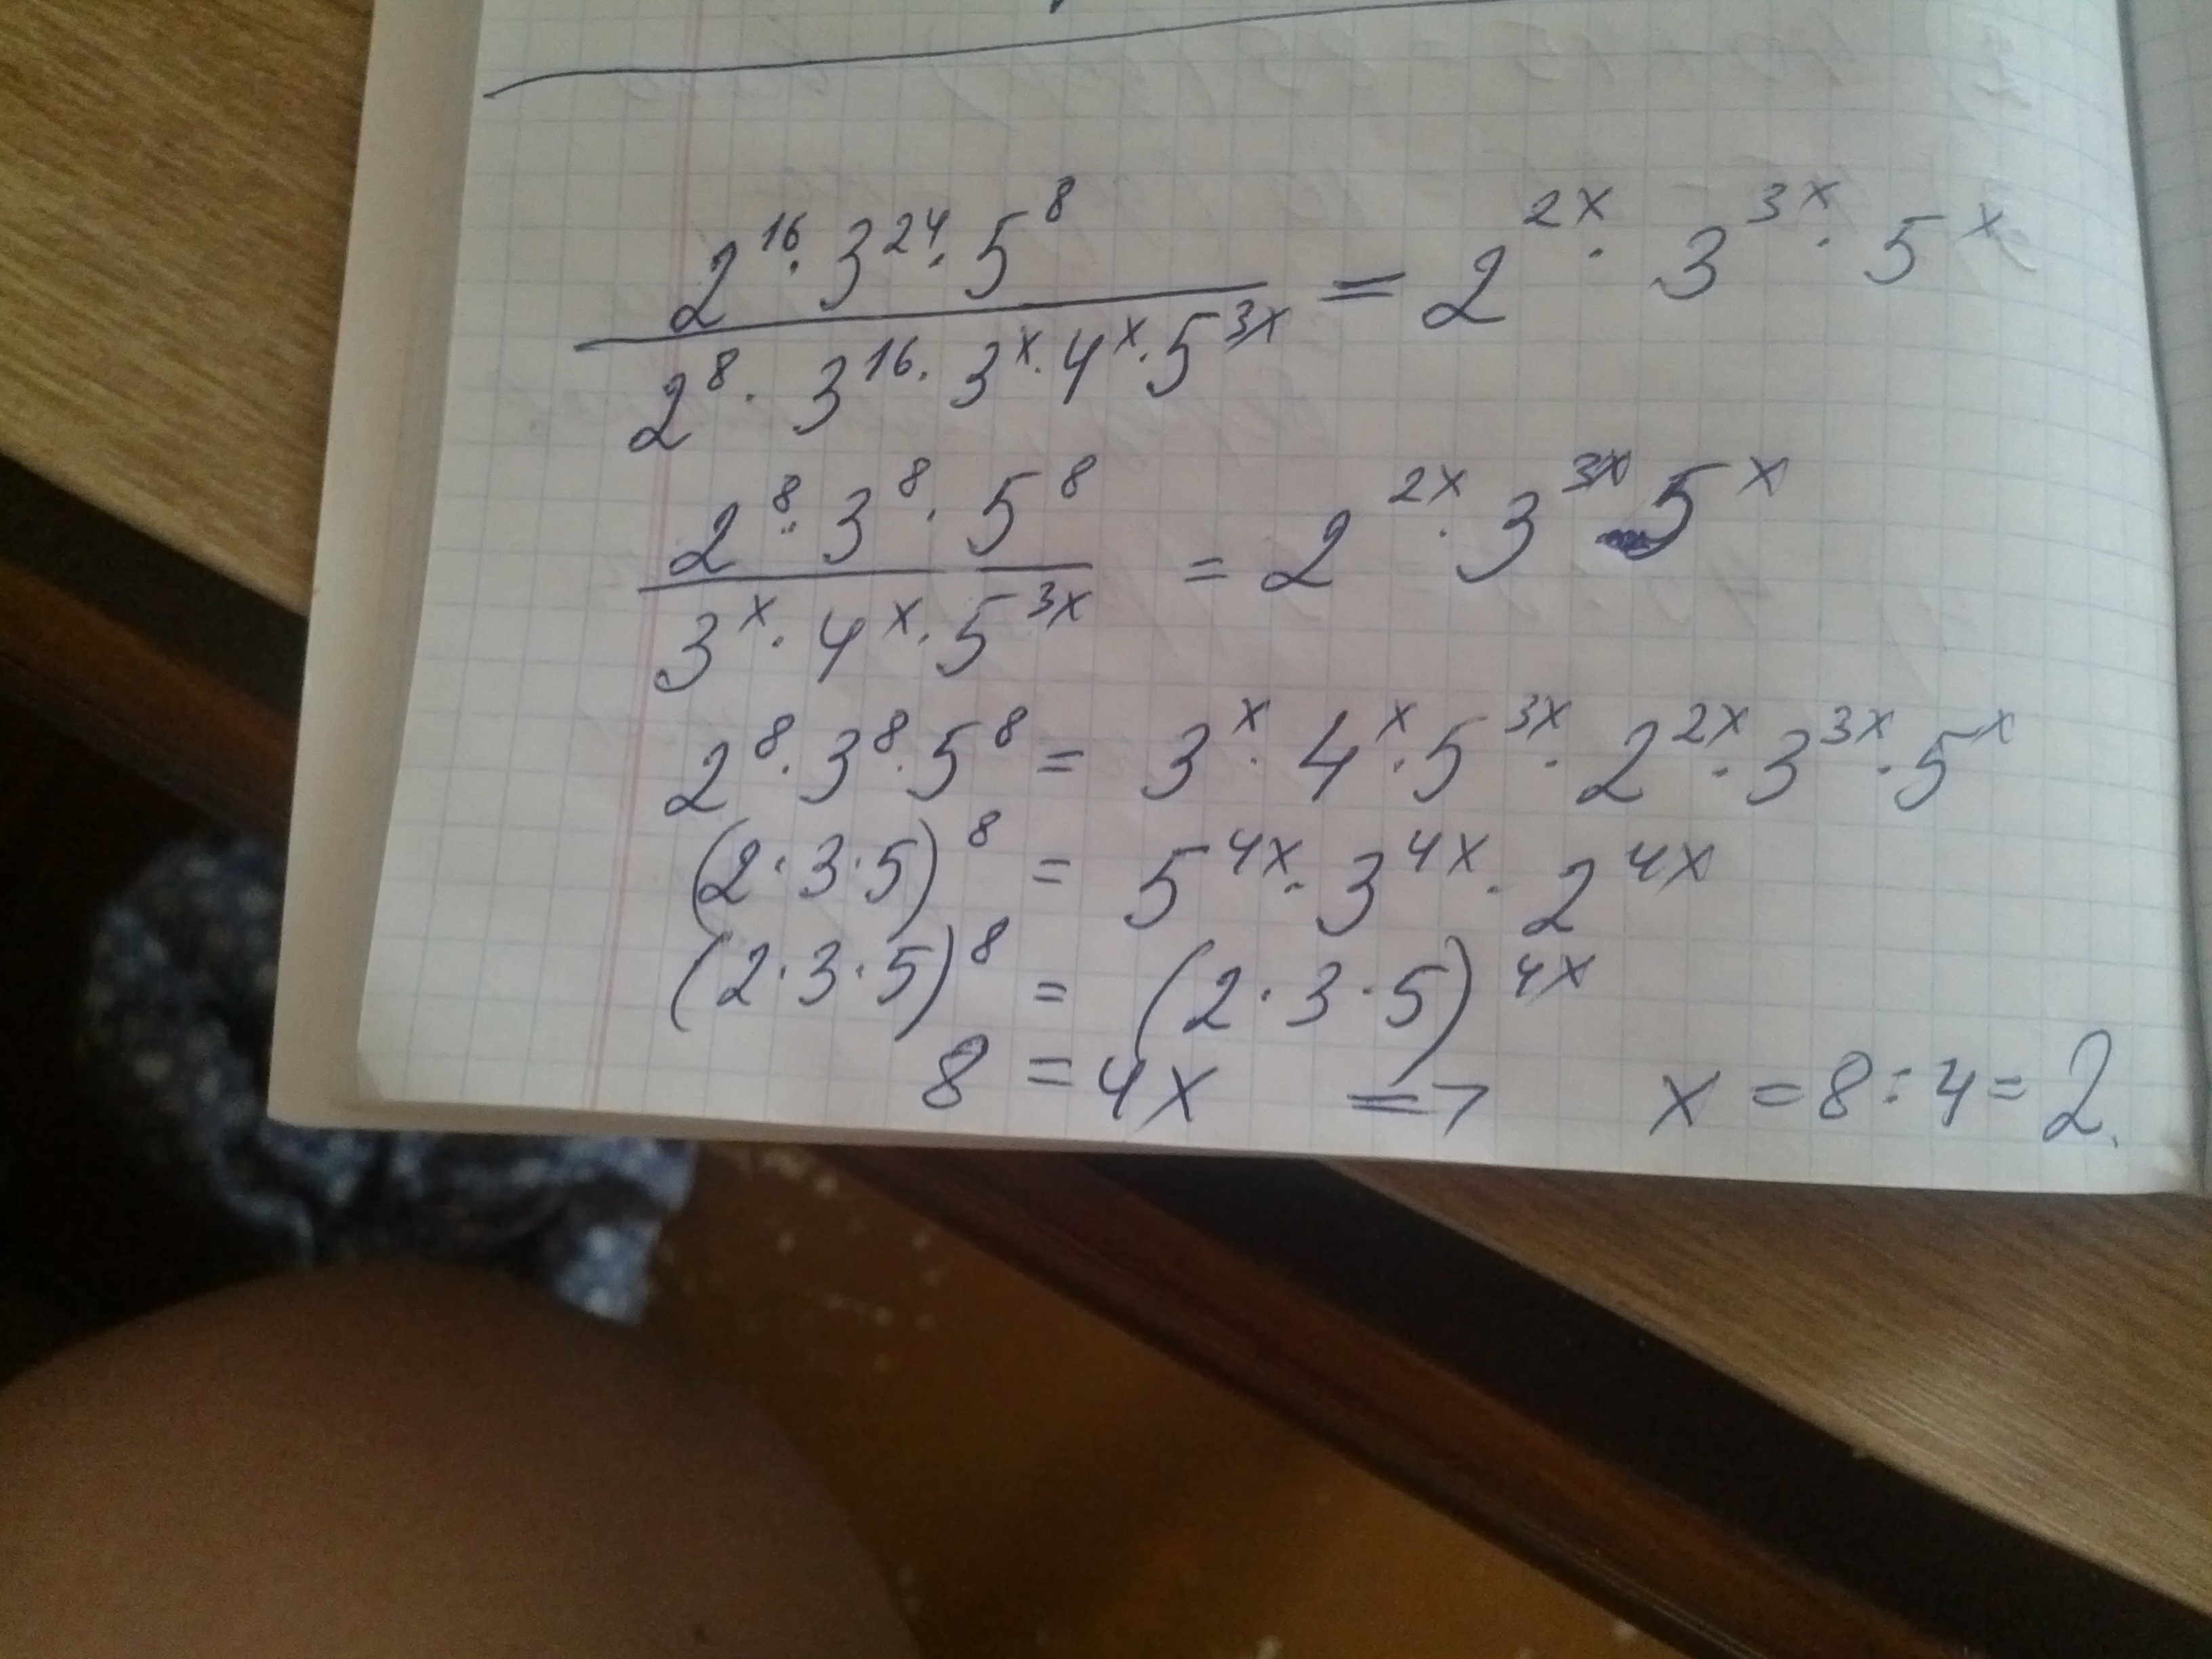 2^16 · 3^24 · 5^8 / 2^8 · 3^16 · 3^x · 4^x · 5^3x = 2^2x · 3^3x · 5^x
2^8 · 3^8 · 5^8 / 3^x · 4^x · 5^3x = 2^2x · 3^3x · 5^x
2^8 · 3^8 · 5^8 = 3^x · 4^x · 5^3x · 2^2x · 3^3x · 5^x
(2 · 3 · 5)^8 = 5^4x · 3^4x · 2^4x
(2 · 3 · 5)^8 = (2 · 3 · 5)^4x
8 = 4x => x = 8 : 4 = 2.